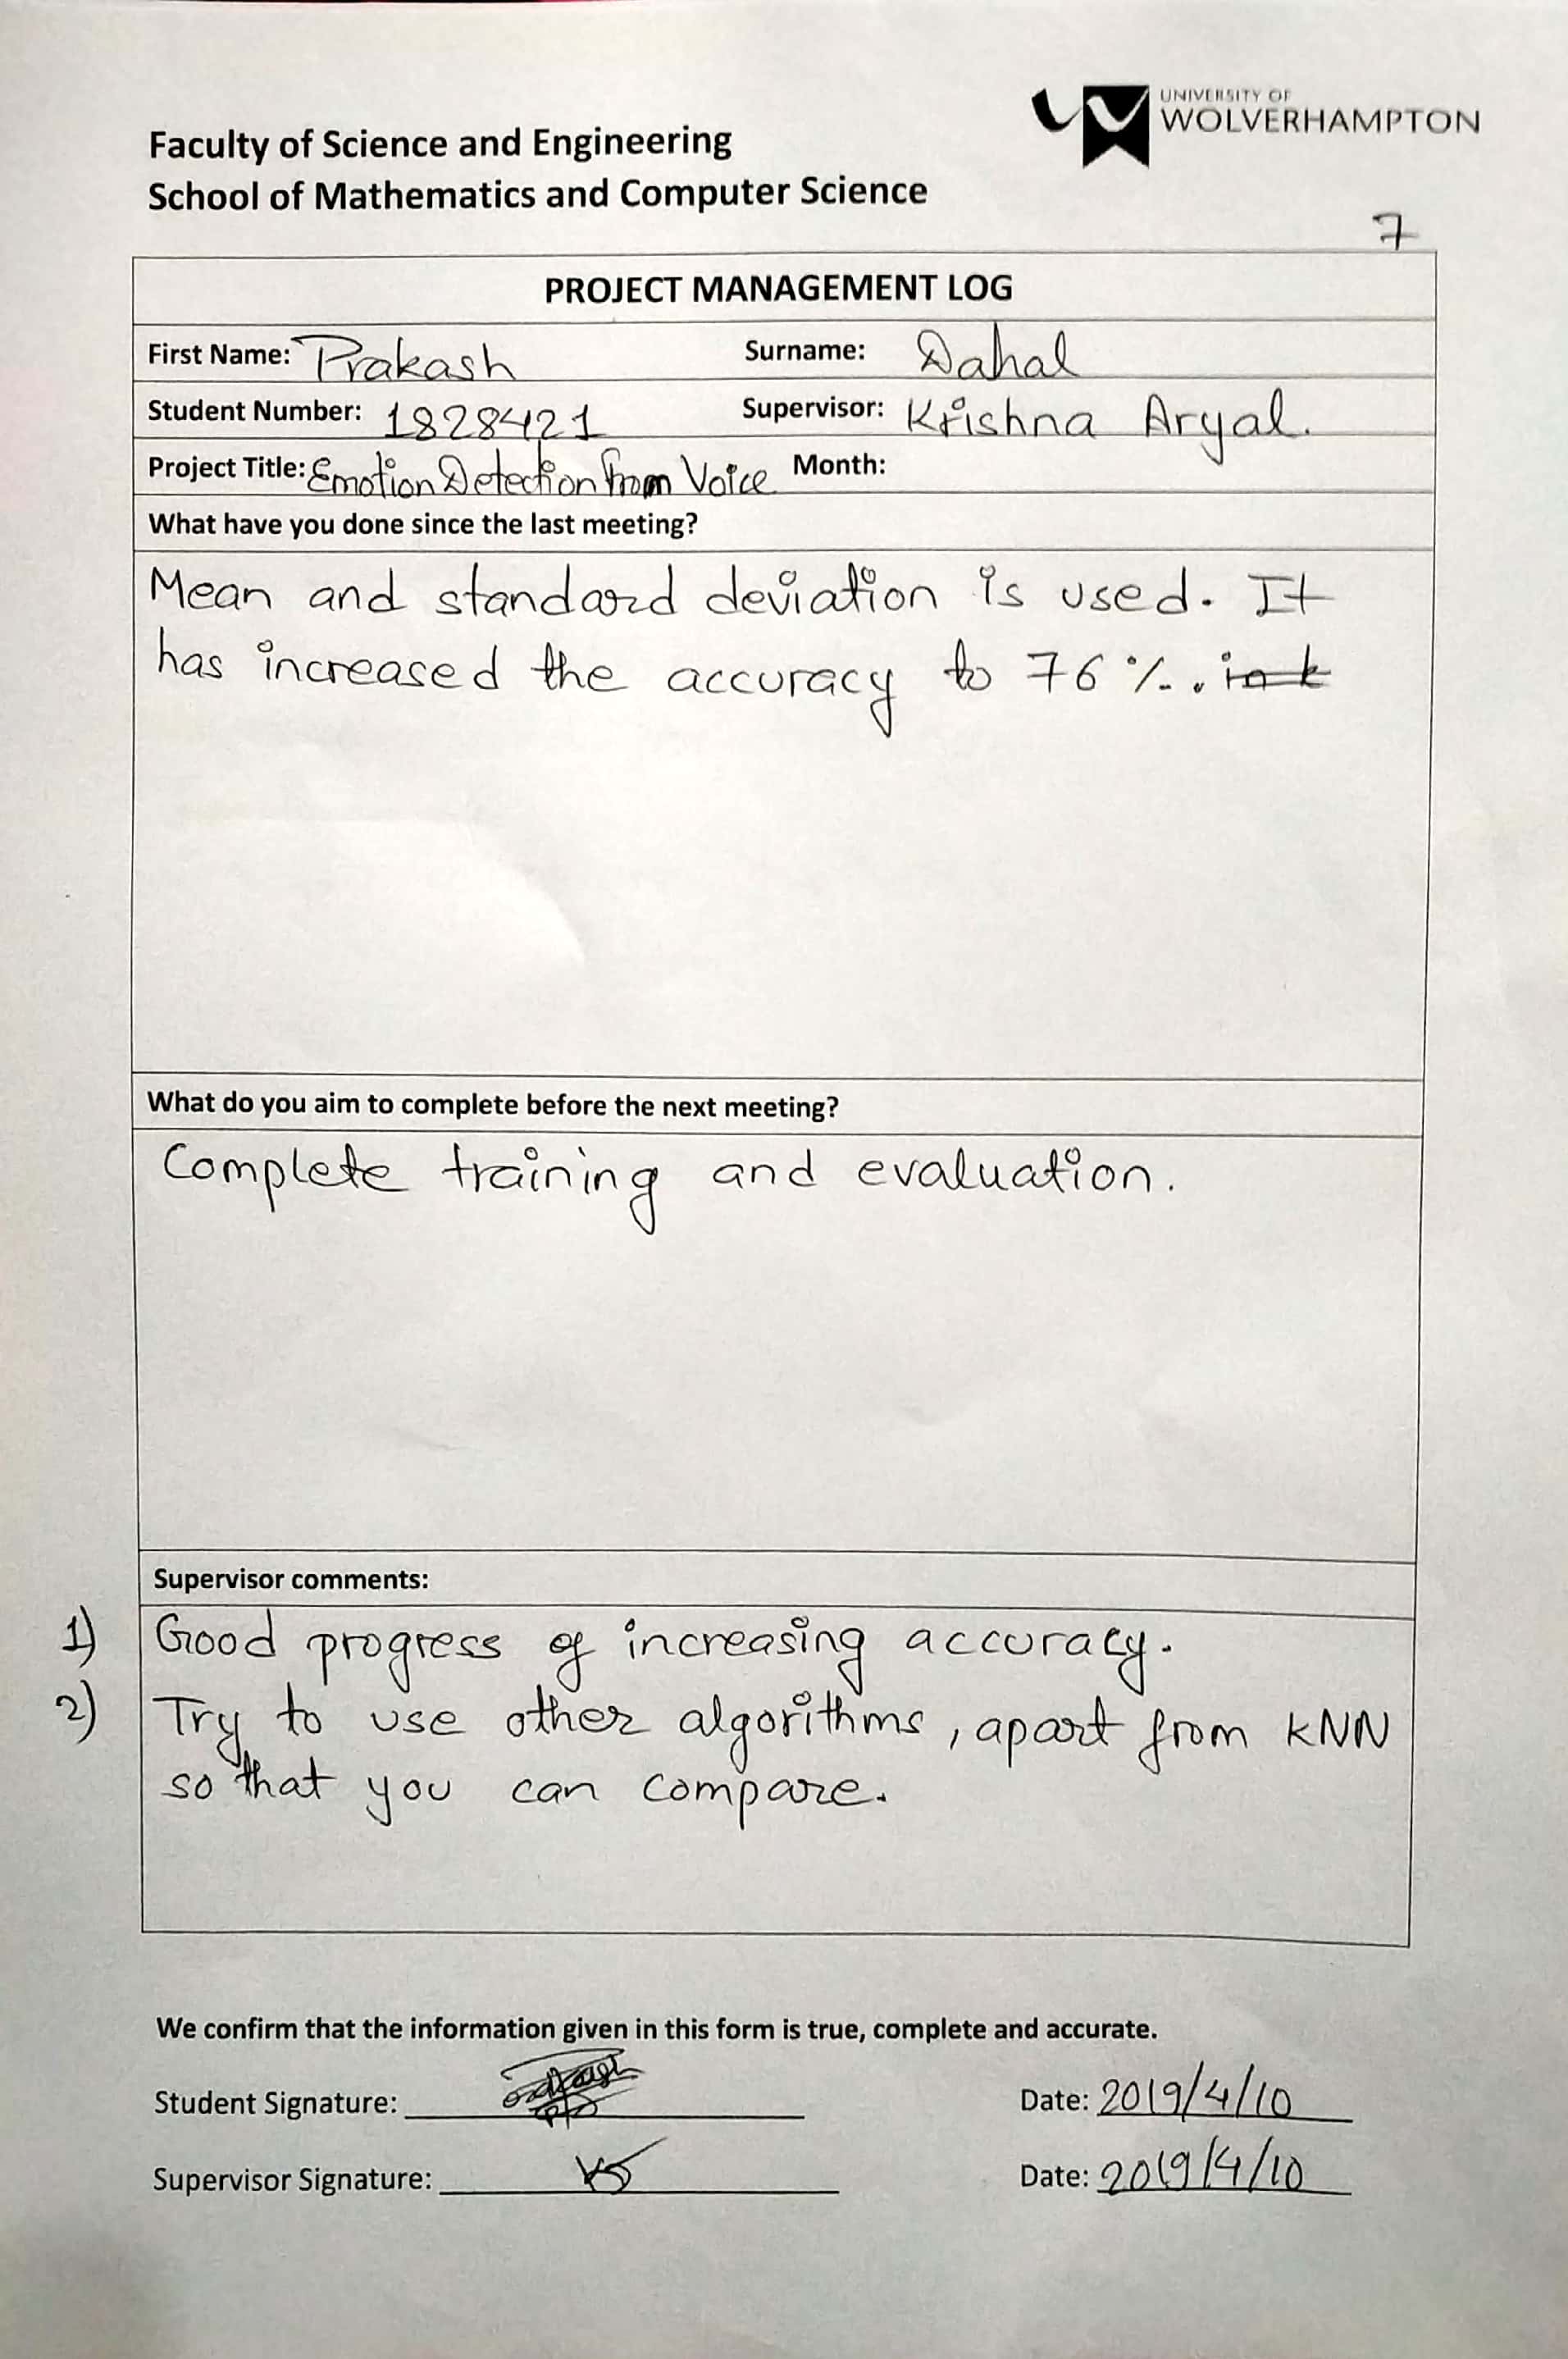 UNIVERSITY OF
WOLVERHAMPTON
Faculty of Science and Engineering
School of Mathematics and Computer Science
7
PROJECT MANAGEMENT LOG
First Name: Prakash Surname: Dahal
Student Number: 1828421 Supervisor: Krishna Aryal.
Project Title: Emotion Detection from Voice Month:
What have you done since the last meeting?
Mean and standard deviation is used. It
has increased the accuracy to 76%.
What do you aim to complete before the next meeting?
Complete training and evaluation.
Supervisor comments:
1) Good progress of increasing accuracy.
2) Try to use other algorithms, apart from KNN
so that you can compare.
We confirm that the information given in this form is true, complete and accurate.
Student Signature: Date: 2019/4/10
Supervisor Signature: Date: 2019/4/10